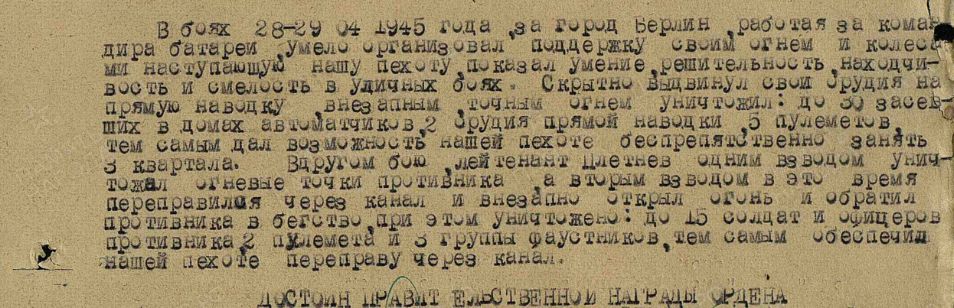 В боях 28-29 04 1945 года ,за город Берлин ,работая за коман-
дира батареи ,умело организовал поддержку своим огнем и колеса-
ми наступающую нашу пехоту,показал умение,решительность,находчи-
вость и смелость в уличных боях. Скрытно выдвинул свои орудия на
прямую наводку ,внезапным точным огнем уничтожил: до 30 засев-
ших в домах автоматчиков,2 орудия прямой наводки ,5 пулеметов,
тем самым дал возможность нашей пехоте беспрепятственно занять
3 квартала. Вдругом бою ,лейтенант Плетнев одним взводом унич-
тожал огневые точки противника ,а вторым взводом в это время
переправился через канал и внезапно открыл огонь и обратил
противника в бегство,при этом уничтожено: до 15 солдат и офицеров
противника 2 пулемета и 3 группы фаустников,тем самым обеспечил
нашей пехоте переправу через канал.
ДОСТОИН ПРАВИТ ЕЛЬСТВЕННОЙ НАГРАДЫ ОРДЕНА